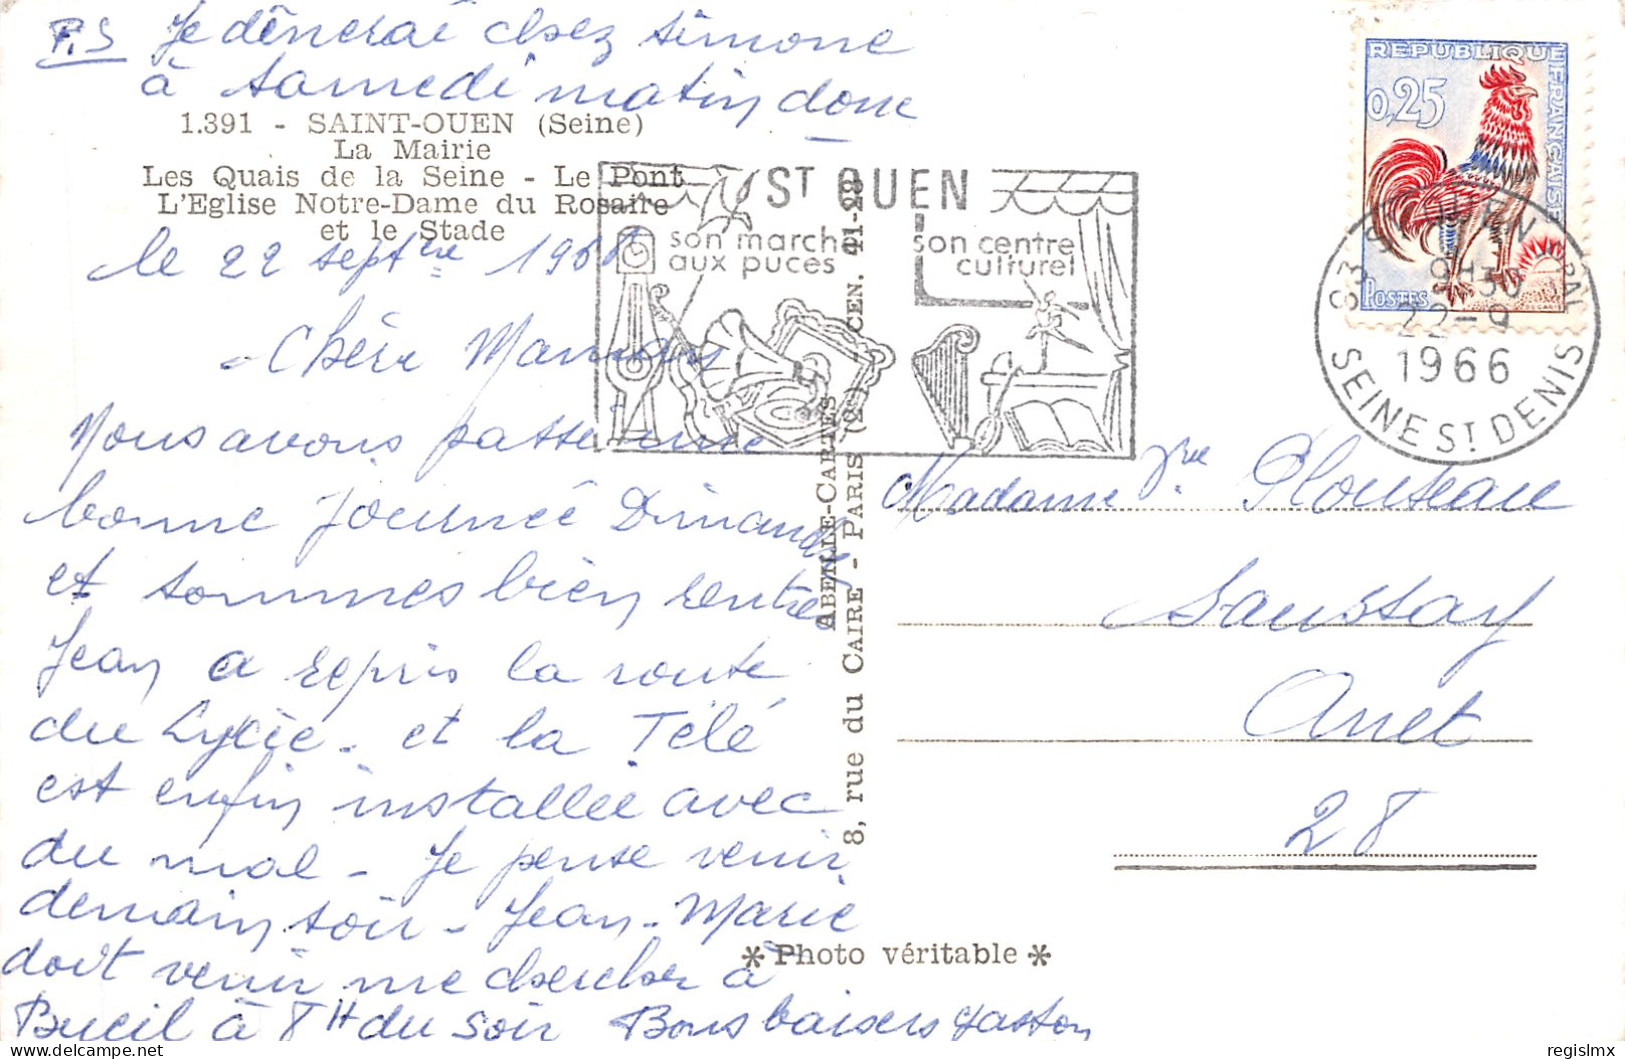 P.S Je dînerai chez Simone
à Samedi matin donc
1.391 - SAINT-OUEN (Seine)
La Mairie
Les Quais de la Seine - Le Pont
L'Eglise Notre-Dame du Rosaire
et le Stade
le 22 septbre 1966
Chère Maman
Nous avons passé une
bonne journée Dimanche
et sommes bien rentrés
Jean a repris la route
du Lycée - et la Télé
est enfin installée avec
du mal - Je pense venir
demain soir - Jean-Marie
doit venir me chercher à
Bueil à 8H du soir Bons baisers Gaston
ST OUEN
son marché
aux puces
son centre
culturel
ABEILLE-CARTES
8, rue du CAIRE - PARIS (2e) - CEN. 41-23
REPUBLIQUE FRANÇAISE
0,25
POSTES
93 ST OUEN PPAL
9H30
22-9
1966
SEINE ST DENIS
Madame Vve Plouseau
Saussay
Anet
28
* Photo véritable *
regislmx
delcampe.net